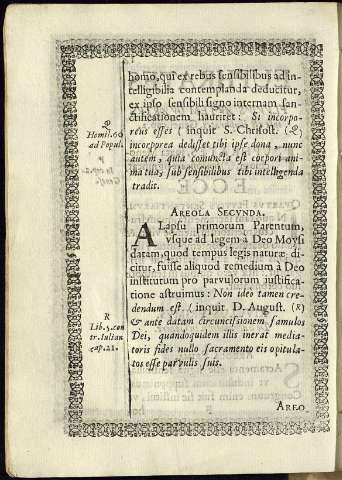 homo, qui ex rebus sensibilibus ad in-
telligibilia contemplanda deducitur,
ex ipso sensibili signo internam san-
ctificationem hauriret: Si incorpo-
reus esses (inquit S. Chrisost. (Q)
incorporea dedisset tibi ipse dona, nunc
autem, quia coniuncta est corpori ani-
ma tua, sub sensibilibus tibi intelligenda
tradit.
Q
Homil. 60
ad Popul.
AREOLA SECVNDA.
A Lapsu primorum Parentum,
vsque ad legem à Deo Moysi
datam, quod tempus legis naturæ di-
citur, fuisse aliquod remedium à Deo
institutum pro parvulorum iustifica-
tione astruimus: Non ideo tamen cre-
dendum est. (inquit D. August. (R)
& ante datam circuncisionem famulos
Dei, quandoquidem illis inerat media-
toris fides nullo sacramento eis opitula-
tos esse parvulis suis.
R
Lib. 5. con
tr. Iulian.
cap. 21.
AREO